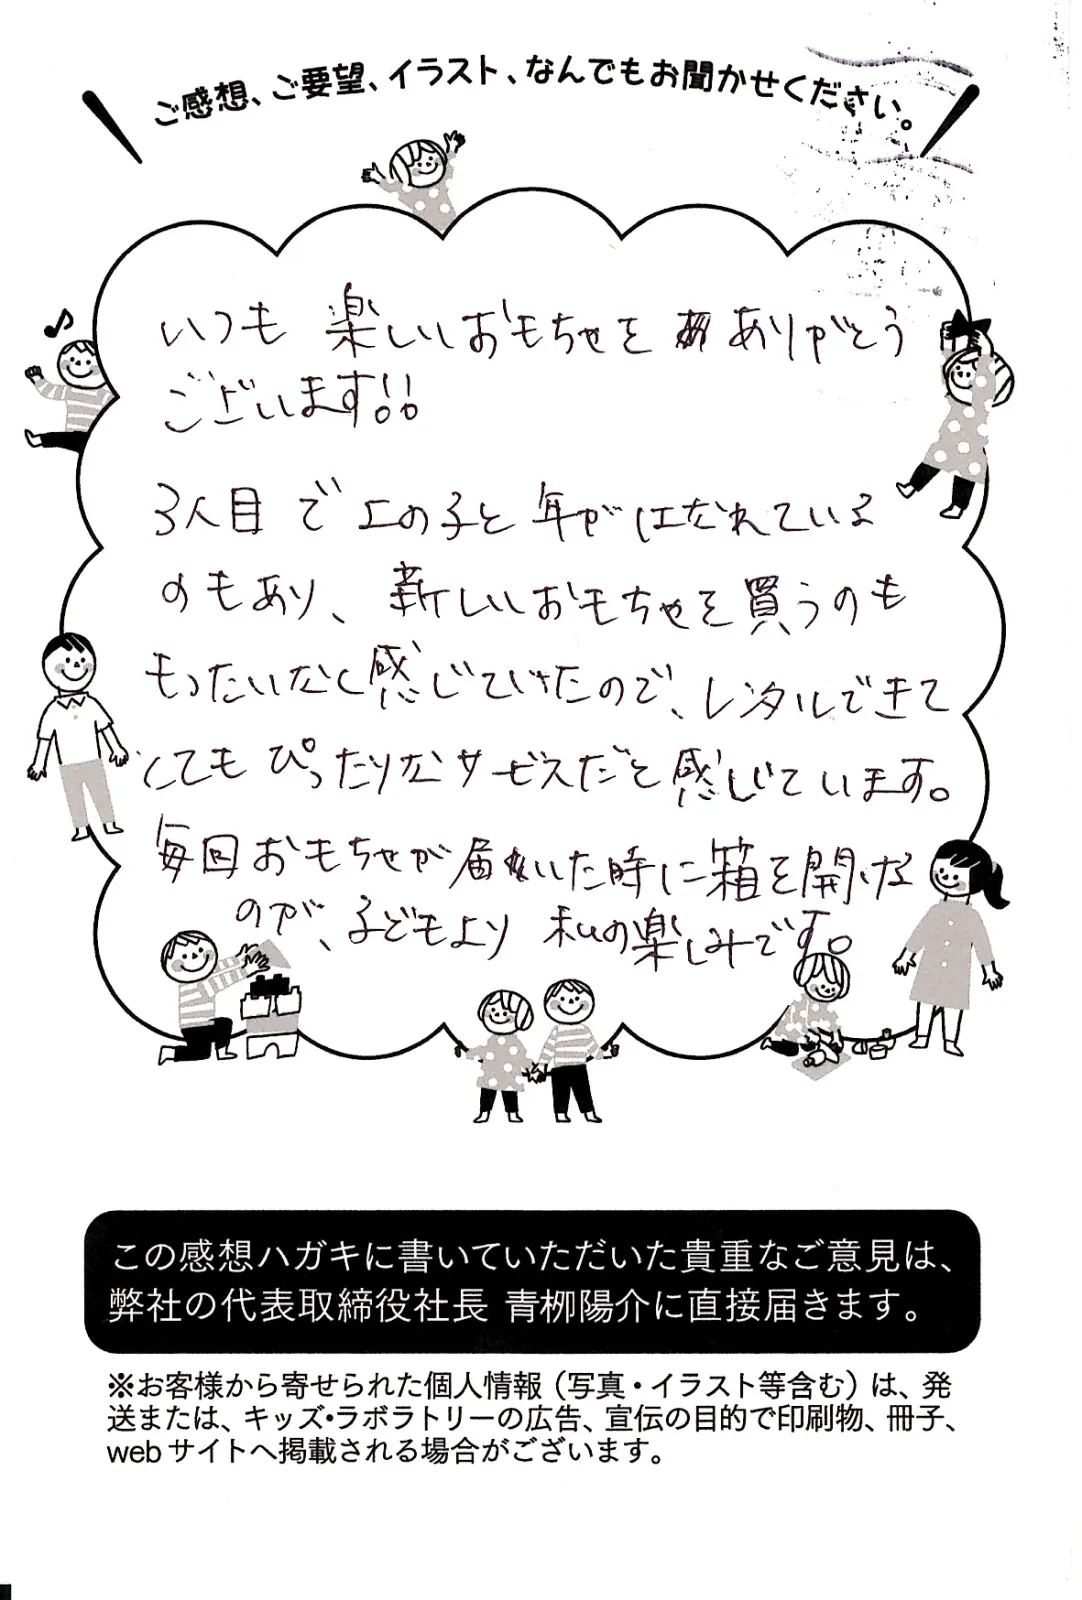 ご感想、ご要望、イラスト、なんでもお聞かせください。
いつも 楽しいおもちゃを ありがとう
ございます!!
3人目で上の子と年がはなれている
のもあり、新しいおもちゃを買うのも
もったいなく感じていたので、レンタルできて
とてもぴったりなサービスだと感じています。
毎回おもちゃが届いた時に箱を開ける
のが、子どもより 私の楽しみです。
この感想ハガキに書いていただいた貴重なご意見は、
弊社の代表取締役社長 青栁陽介に直接届きます。
※お客様から寄せられた個人情報（写真・イラスト等含む）は、発
送または、キッズ・ラボラトリーの広告、宣伝の目的で印刷物、冊子、
webサイトへ掲載される場合がございます。